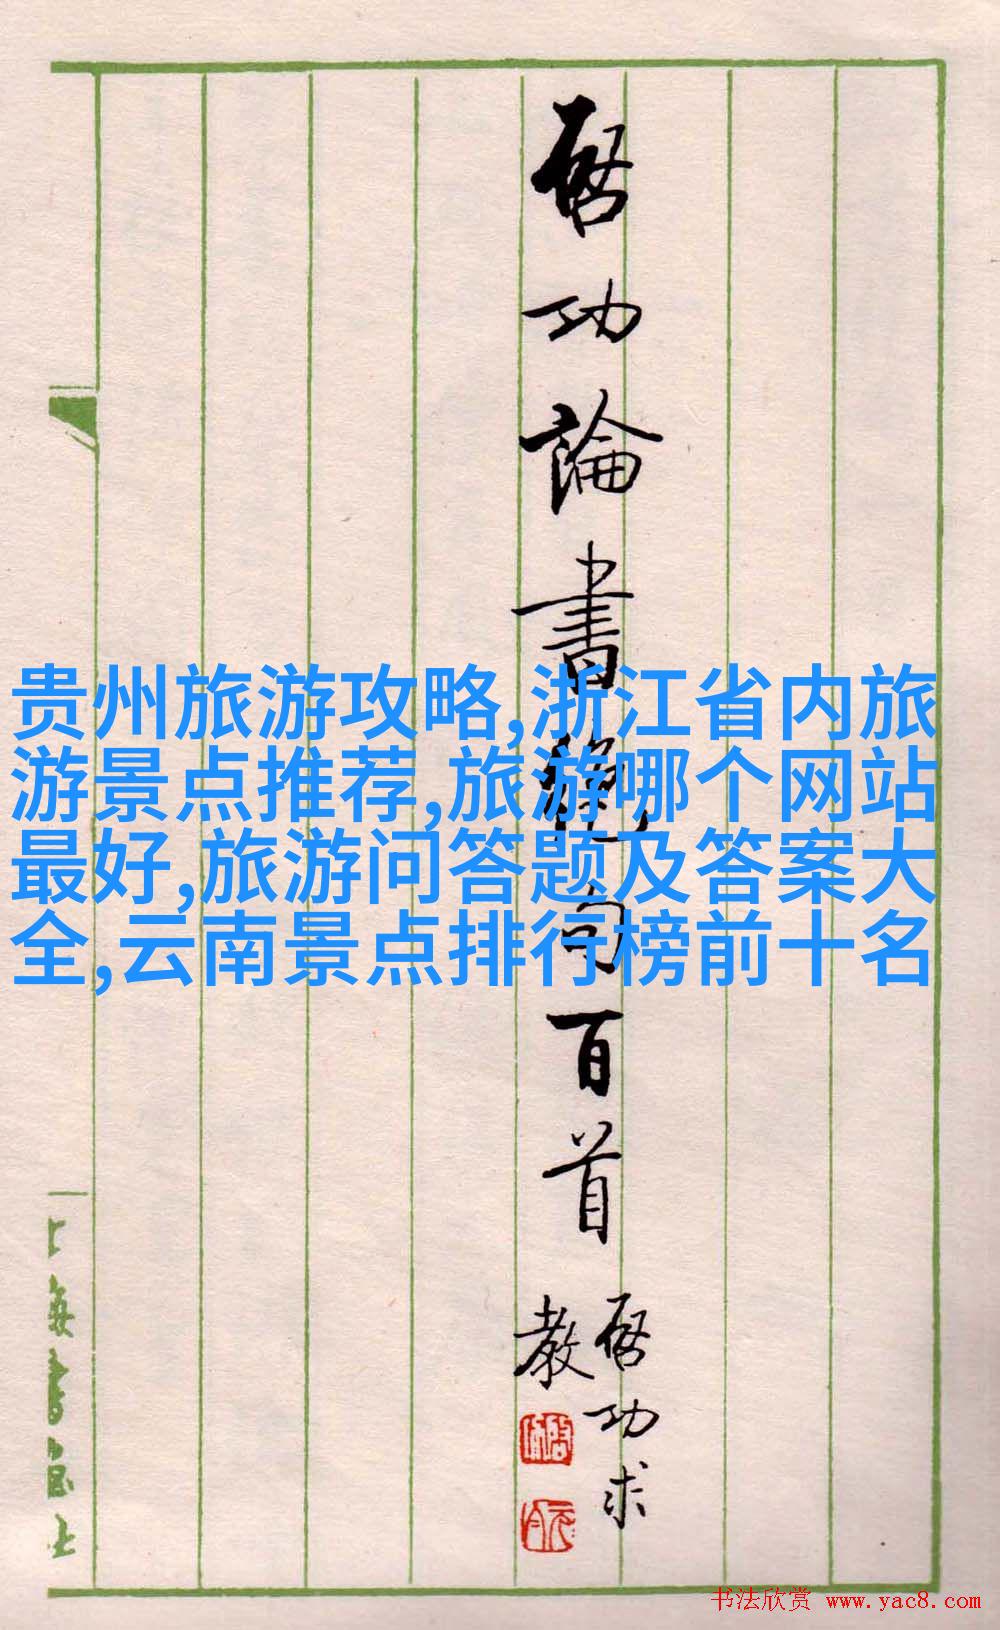 启功論書絶句百首
启功求
教
贵州旅游攻略,浙江省内旅
游景点推荐,旅游哪个网站
最好,旅游问答题及答案大
全,云南景点排行榜前十名
上海書画社
书法欣赏 www.yac8.com